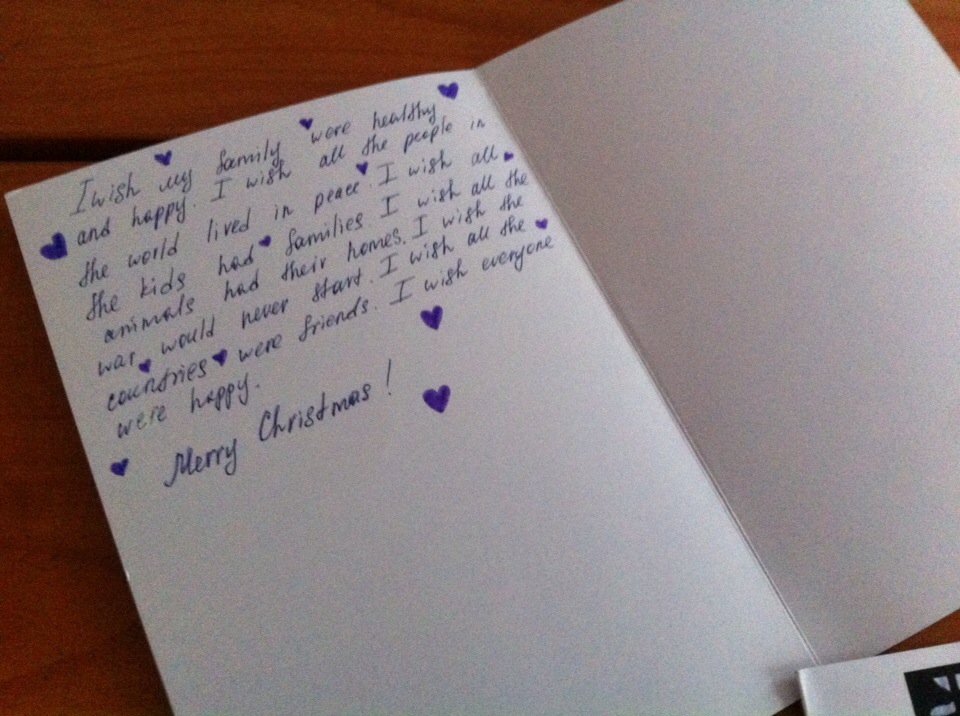 I wish my family were healthy
and happy. I wish all the people in
the world lived in peace. I wish all
the kids had families I wish all the
animals had their homes. I wish the
war would never start. I wish all the
countries were friends. I wish everyone
were happy.
Merry Christmas!